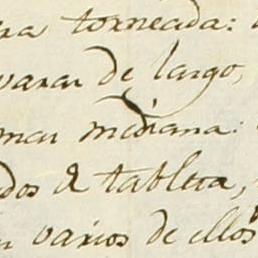 torneada:
varas de largo,
mediana:
dos de tablera,
varios de ellos